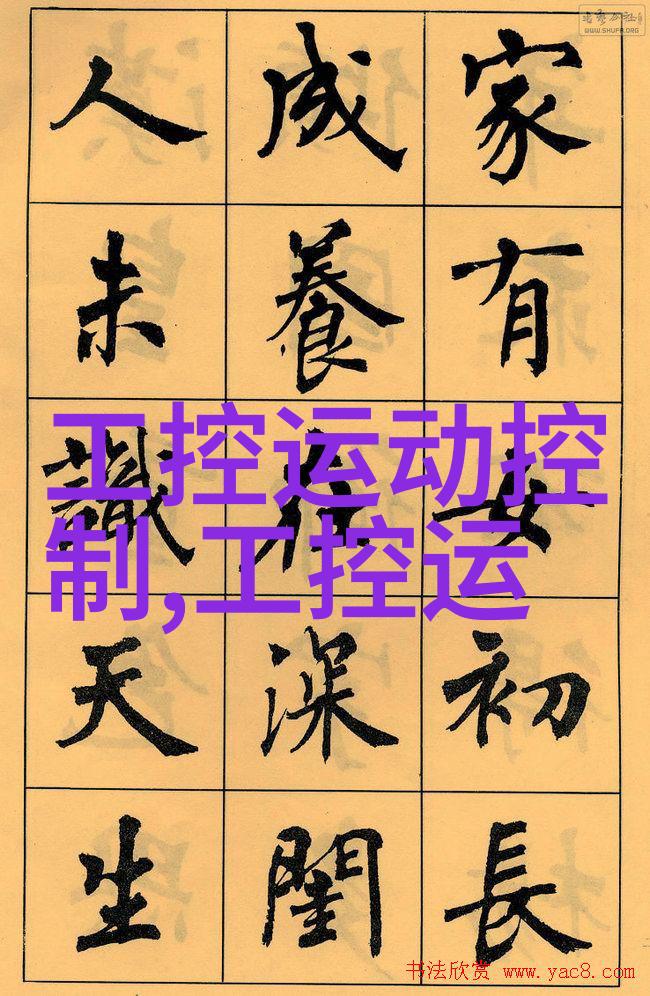 WWW.SHUFA.ORG
家有女初長
成養在深閨
人未識天生
工控运动控
制,工控运
书法欣赏 www.yac8.com